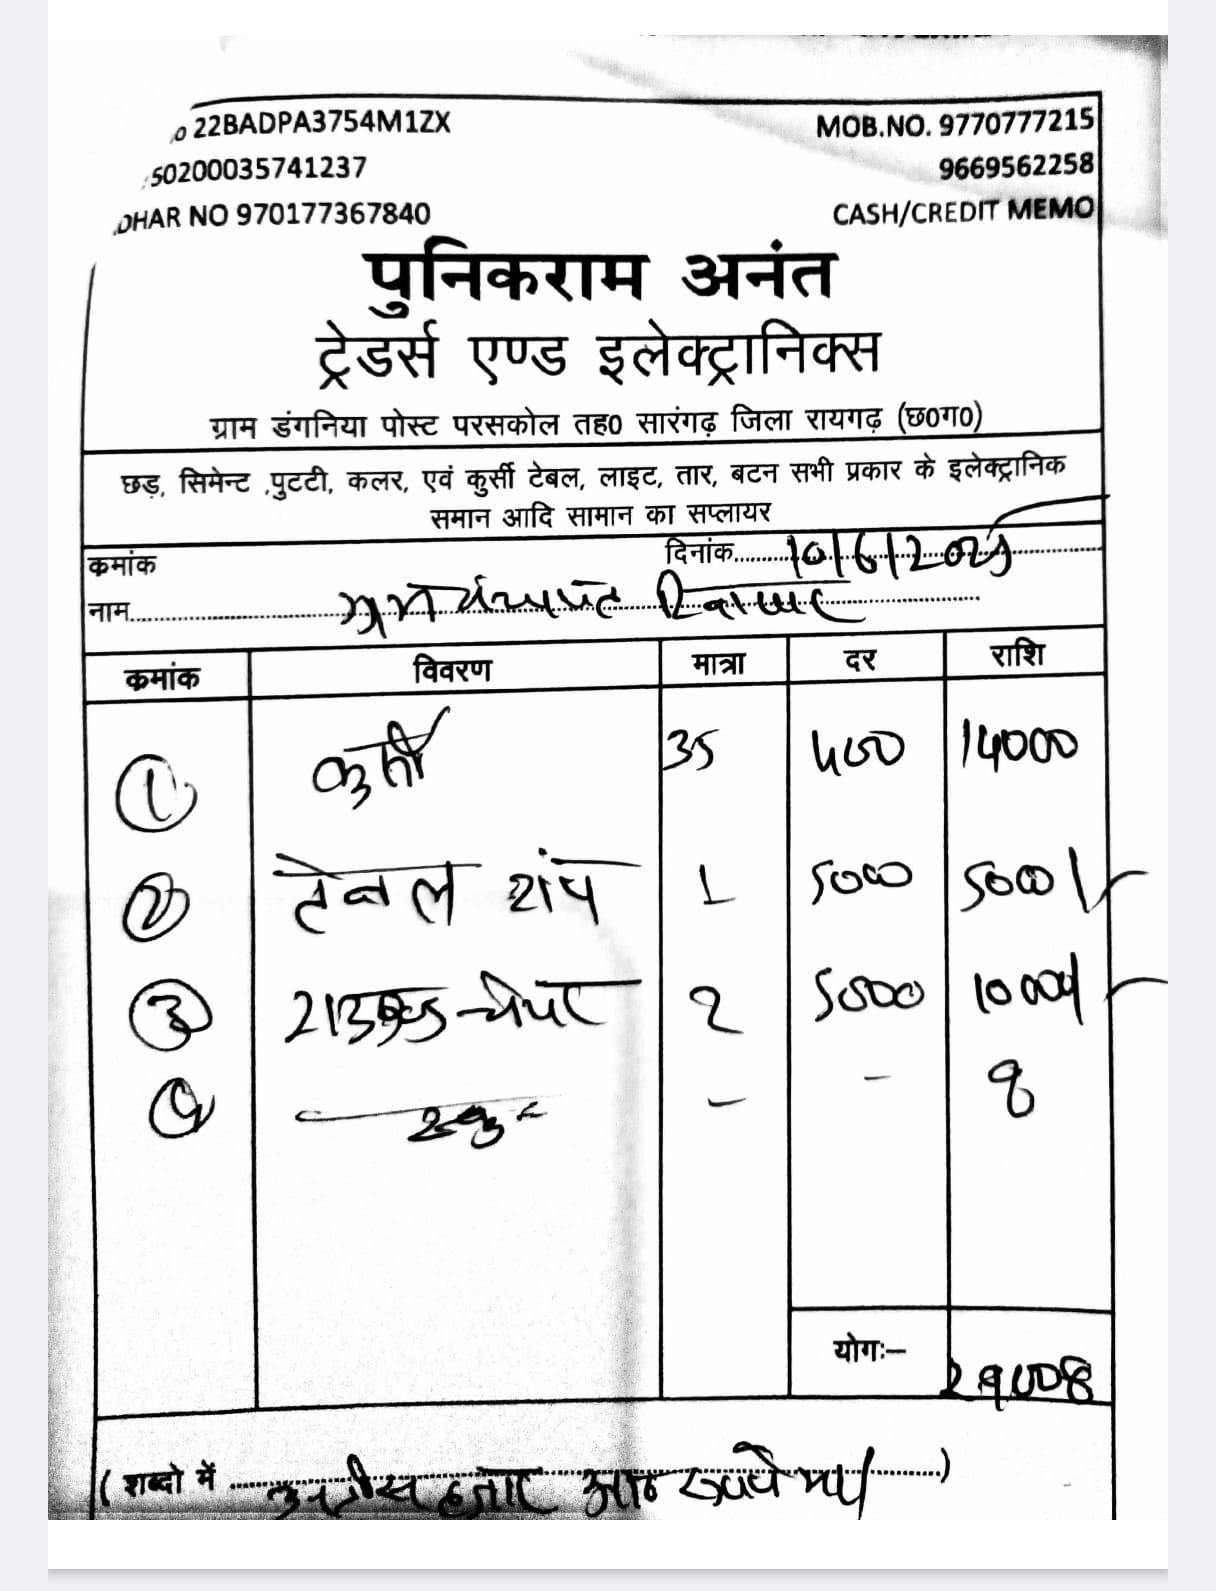 22BADPA3754M1ZX
MOB.NO. 9770777215
50200035741237
9669562258
DHAR NO 970177367840
CASH/CREDIT MEMO
पुनिकराम अनंत
ट्रेडर्स एण्ड इलेक्ट्रानिक्स
ग्राम डंगनिया पोस्ट परसकोल तह0 सारंगढ़ जिला रायगढ़ (छ0ग0)
छड़, सिमेन्ट ,पुटटी, कलर, एवं कुर्सी टेबल, लाइट, तार, बटन सभी प्रकार के इलेक्ट्रानिक
समान आदि सामान का सप्लायर
कमांक
दिनांक..........10/6/2025
नाम.......... ग्राम पंचायत
क्रमांक विवरण मात्रा दर राशि
1 कुर्सी 35 400 14000
2 टेबल 1 5000 5000/-
3 चेयर 2 5000 10000/-
4 - - 8
योगः– 29008
( शब्दो में ..... उनतीस हजार आठ रूपये मा/ .....)